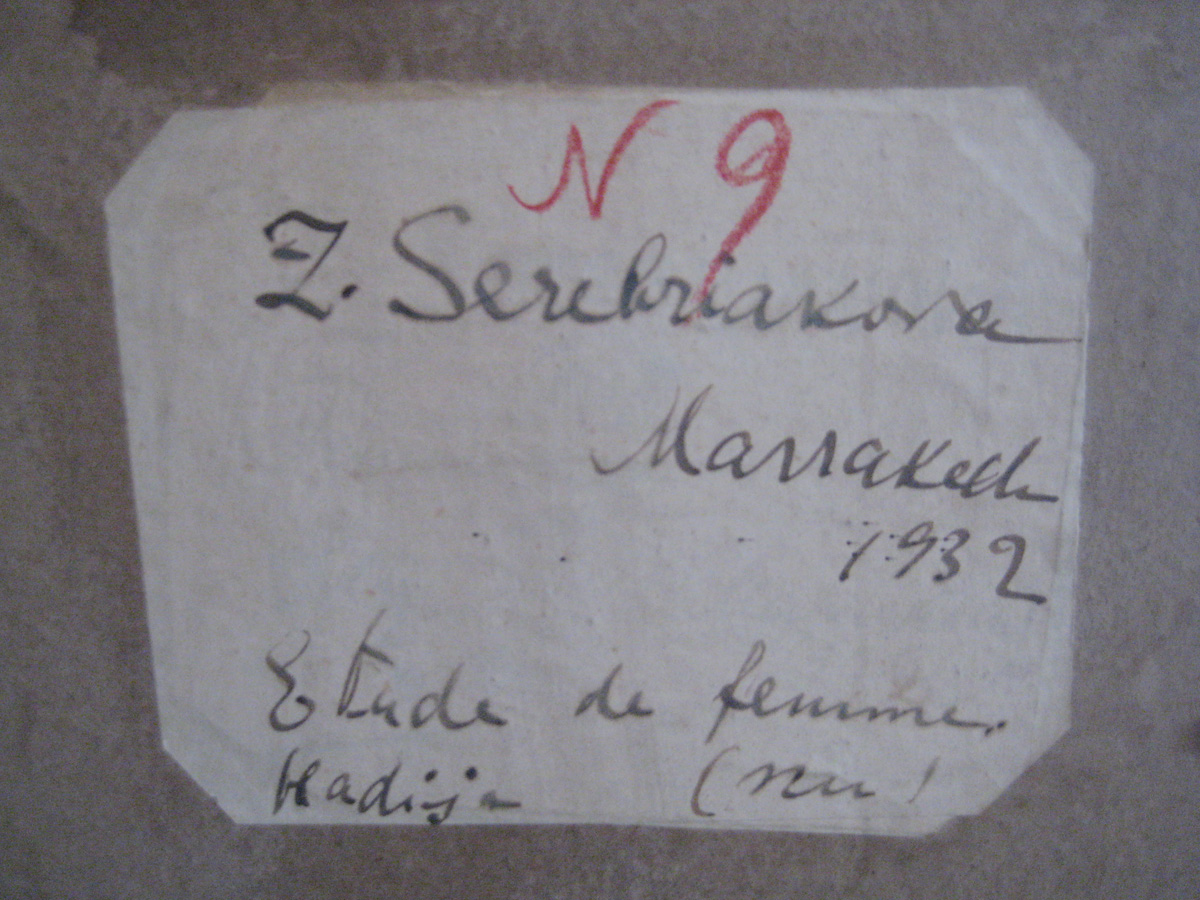 N 9
Z. Serebriakova
Marrakech
1932
Etude de femme.
Hadija (nu)